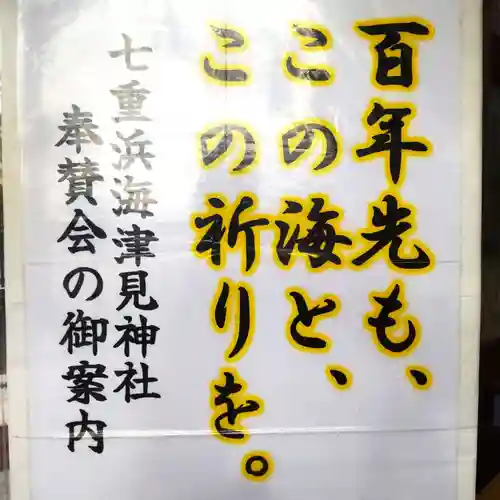 百年先も、
この海と、
この祈りを。
七重浜海津見神社
奉賛会の御案内